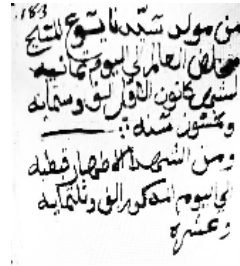 183
من مولد سيدنا يسوع المسيح
مخلص العالم الي اليوم ثمانيه
لشهر كانون الاول الف وستمايه
وعشرون سنه
ومن الشهدا الاطهار قبطيه
الي اليوم المذكور الف وثلثمايه
وعشره